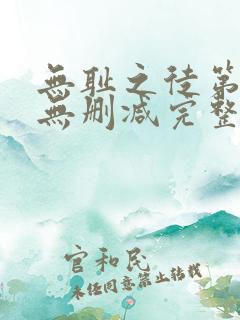 無耻之徒第
無删减完整
官和民
未经同意禁止转载